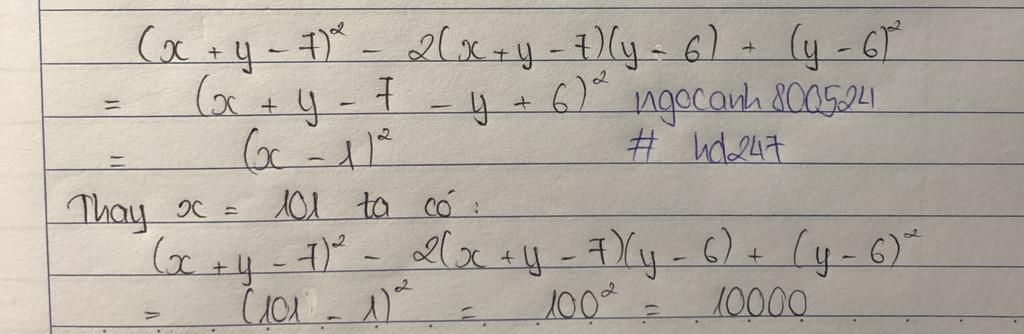 (x + y - 7)² - 2(x + y - 7)(y - 6) + (y - 6)²
= (x + y - 7 - y + 6)² ngocanh800524
= (x - 1)² # hd247
Thay x = 101 ta có :
(x + y - 7)² - 2(x + y - 7)(y - 6) + (y - 6)²
= (101 - 1)² = 100² = 10000